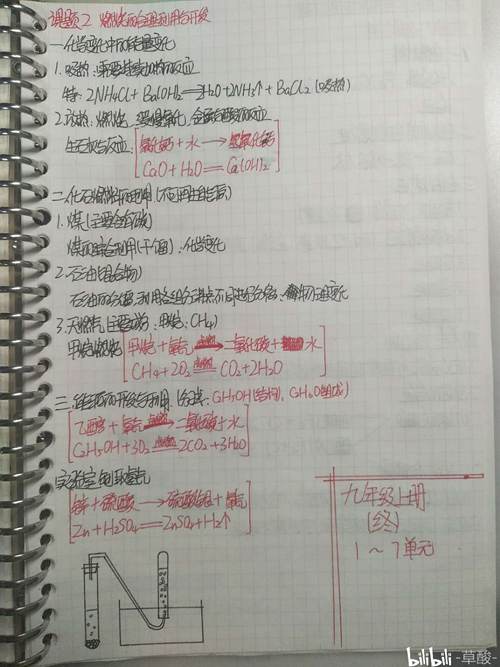 课题2 燃料的合理利用与开发
一.化学变化中的能量变化
1.吸热:需要持续加热的反应
特:2NH4Cl+Ba(OH)2═2H2O+2NH3↑+BaCl2(吸热)
2.放热:燃烧、缓慢氧化、金属与酸的反应
生石灰与水反应:[氧化钙+水→氢氧化钙
CaO+H2O═Ca(OH)2]
二.化石燃料的利用(不可再生能源)
1.煤(主要含有碳)
煤的综合利用(干馏):化学变化
2.石油(混合物)
石油的分馏:利用各组分沸点不同进行分离、物理变化
3.天然气(主要成分:甲烷:CH4)
甲烷燃烧[甲烷+氧气 点燃→二氧化碳+水
CH4+2O2 点燃═ CO2+2H2O]
三.能源的开发与利用 C2H5OH(结构),C2H6O(组成)
[乙醇+氧气 点燃→二氧化碳+水
C2H5OH+3O2 点燃═2CO2+3H2O]
实验室制取氢气
[锌+硫酸→硫酸锌+氢气
Zn+H2SO4═ZnSO4+H2↑]
九年级上册
(终)
1～7单元
bilibili -草酸-